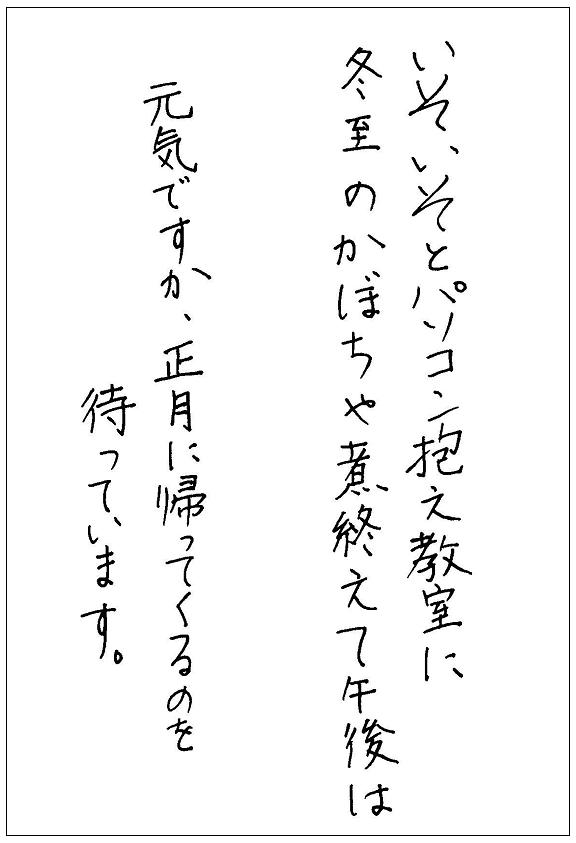 いそいそとパソコン抱え教室に
冬至のかぼちゃ煮終えて午後は
元気ですか、正月に帰ってくるのを
待っています。